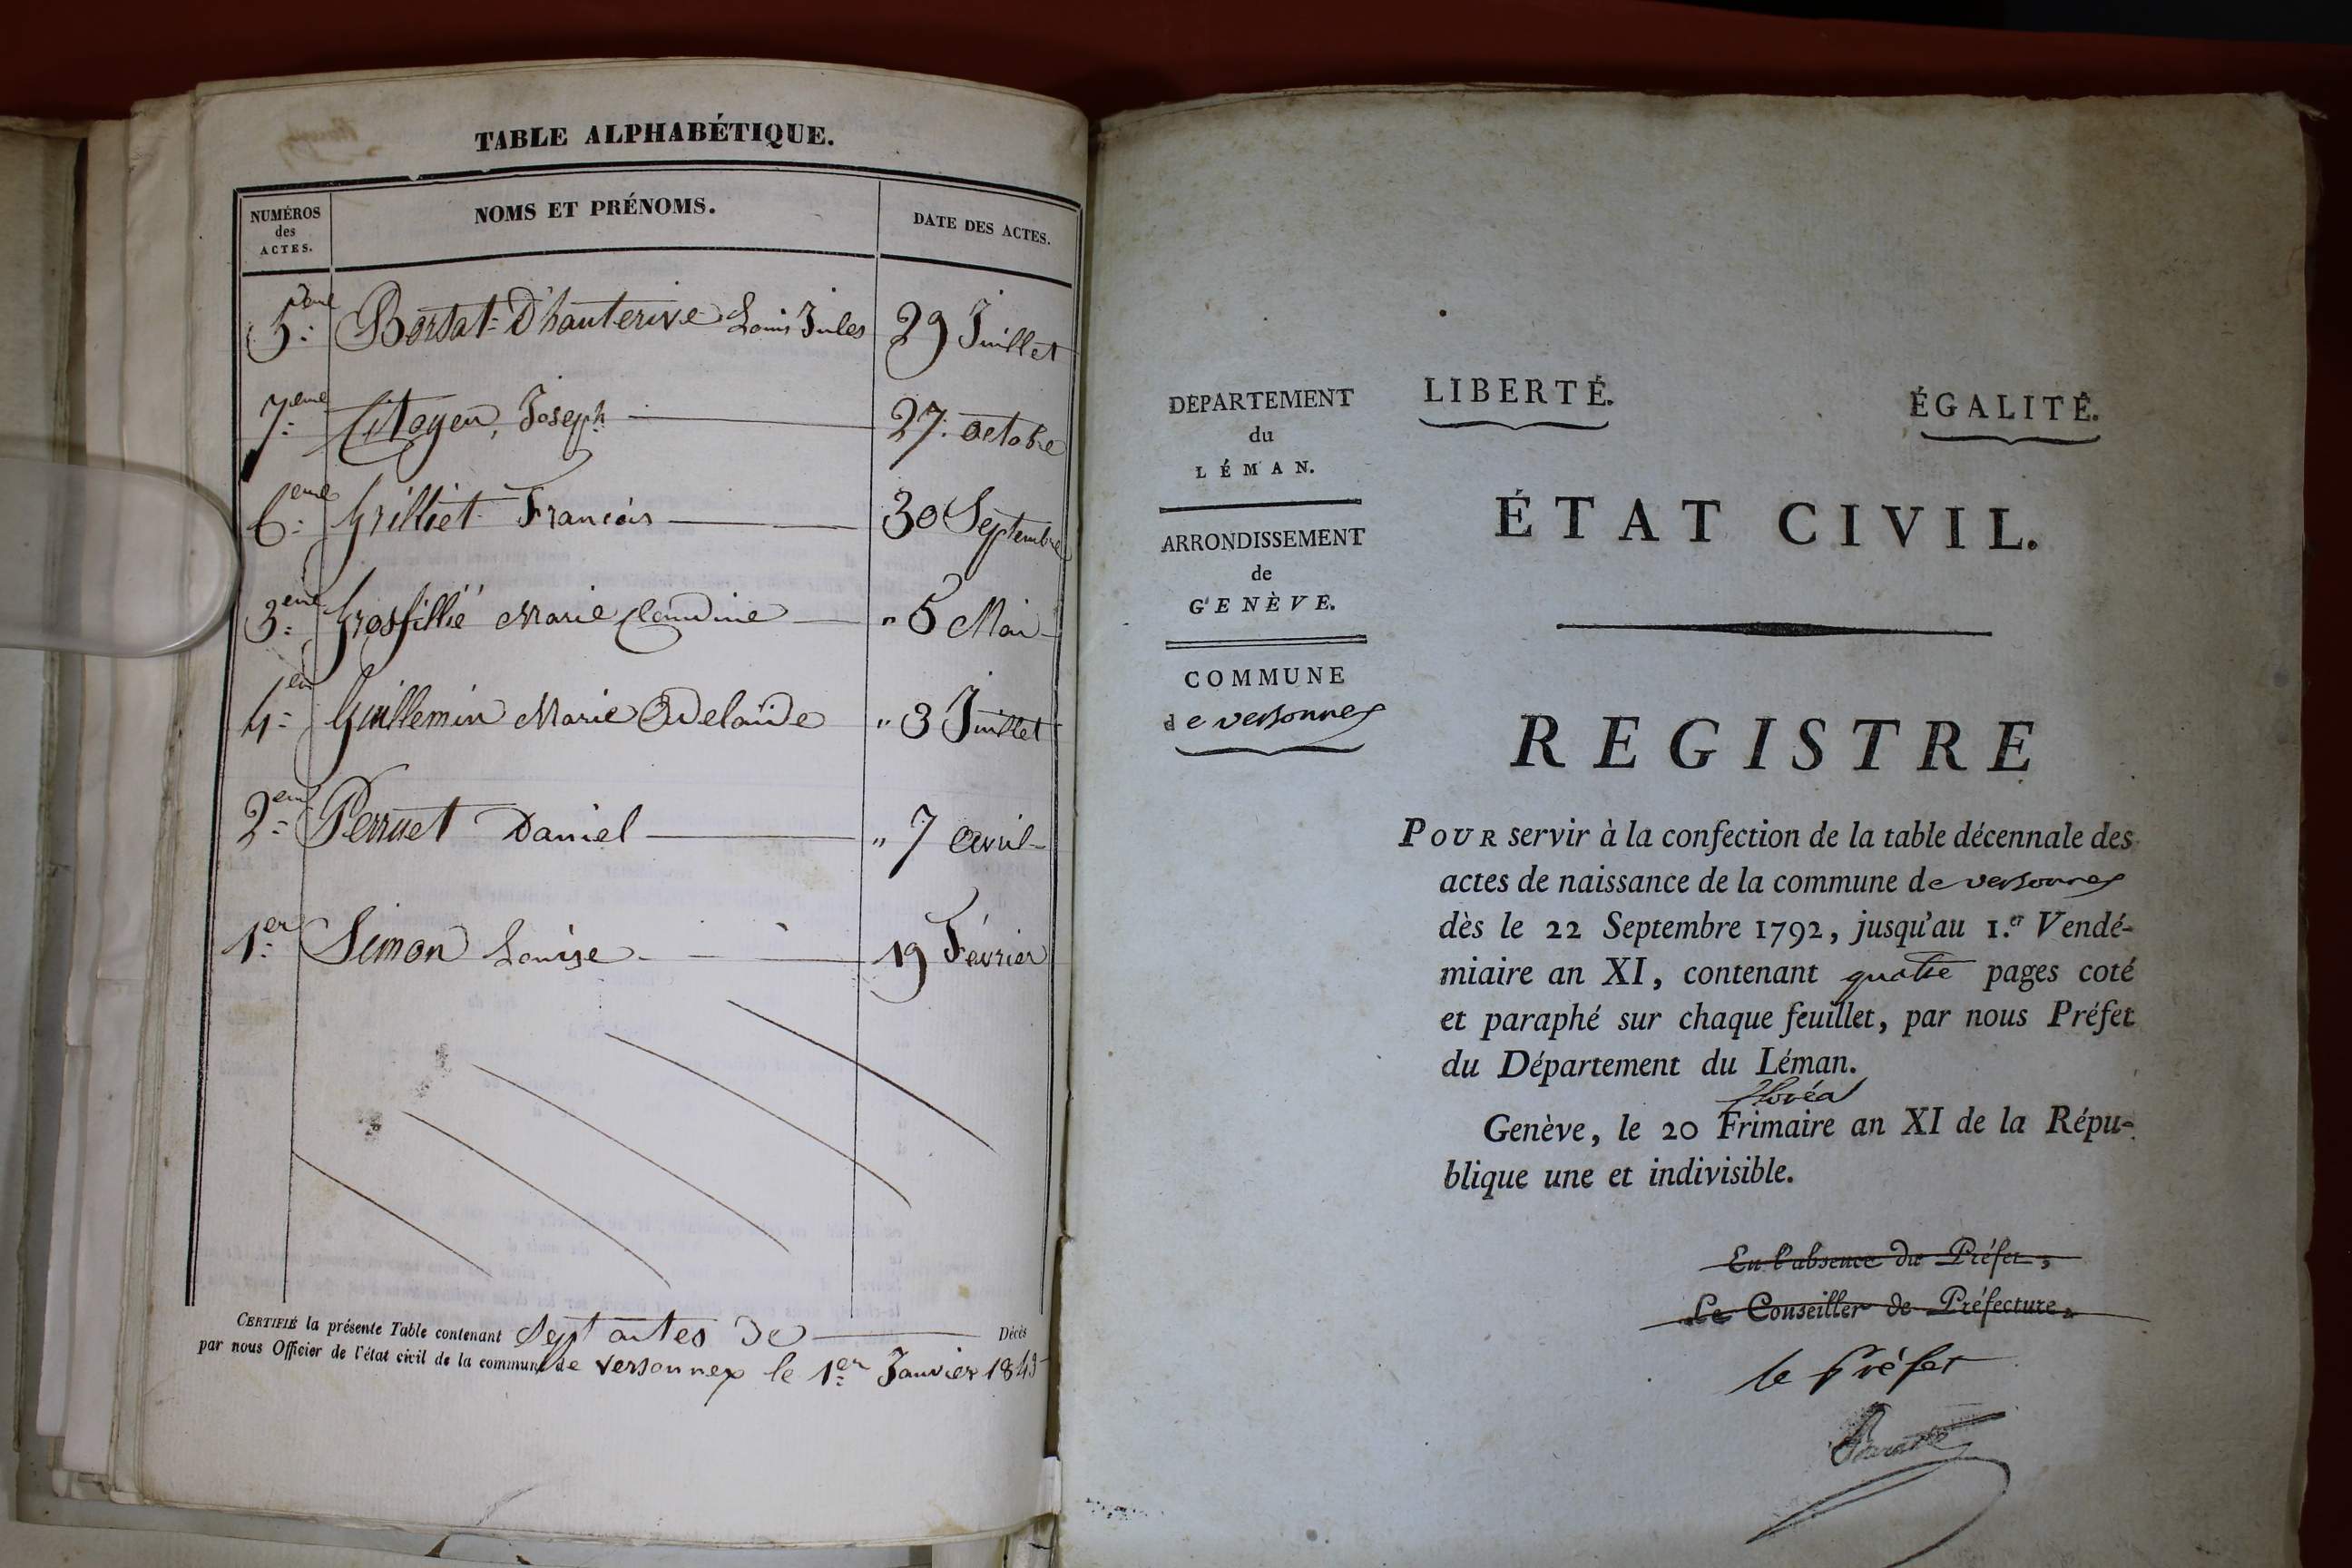 TABLE ALPHABÉTIQUE.
NUMÉROS des ACTES.
NOMS ET PRÉNOMS.
DATE DES ACTES.
5eme Borsat-D'hauterive Louis Jules 29 Juillet
7eme Citoyen, Joseph 27. octobre
6eme Grilliet François 30 Septembre
3eme Grosfillié Marie Claudine " 5 Mai
4em Guillemin Marie Adelaïde " 3 Juillet
2em Perruet Daniel " 7 avril
1er Simon Louise 19 Février
CERTIFIÉ la présente Table contenant Sept actes de Décès
par nous Officier de l'état civil de la commune de Versonnex le 1er Janvier 184
DÉPARTEMENT
du
LÉMAN.
ARRONDISSEMENT
de
GENÈVE.
COMMUNE
de versonnex
LIBERTÉ. ÉGALITÉ.
ÉTAT CIVIL.
REGISTRE
POUR servir à la confection de la table décennale des
actes de naissance de la commune de versonnex
dès le 22 Septembre 1792, jusqu'au 1.er Vendé-
miaire an XI, contenant quatre pages coté
et paraphé sur chaque feuillet, par nous Préfet
du Département du Léman.
floréal
Genève, le 20 Frimaire an XI de la Répu-
blique une et indivisible.
En l'absence du Préfet,
Le Conseiller de Préfecture,
le Préfet